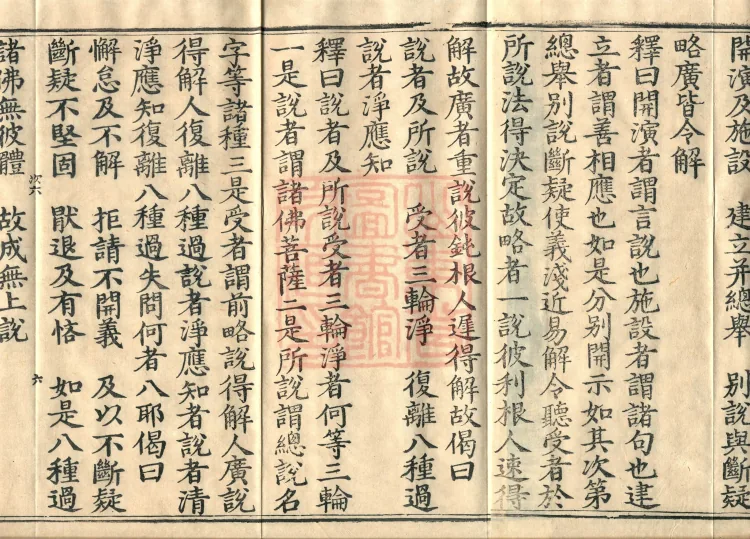 開演及施設　建立并總舉　別說與斷疑
略廣皆令解
釋曰開演者謂言說也施設者謂諸句也建
立者謂善相應也如是分別開示如其次第
總舉別說斷疑使義淺近易解令聽受者於
所說法得決定故略者一說彼利根人速得
解故廣者重說彼鈍根人遲得解故偈曰
說者及所說　受者三輪淨　復離八種過
說者淨應知
釋曰說者及所說受者三輪淨者何等三輪
一是說者謂諸佛菩薩二是所說謂總說名
字等諸種三是受者謂前略說得解人廣說
得解人復離八種過說者淨應知者說者清
淨應知復離八種過失問何者八耶偈曰
懈怠及不解　拒請不開義　及以不斷疑
斷疑不堅固　厭退及有悋　如是八種過
次六　六
諸佛無彼體　故成無上說